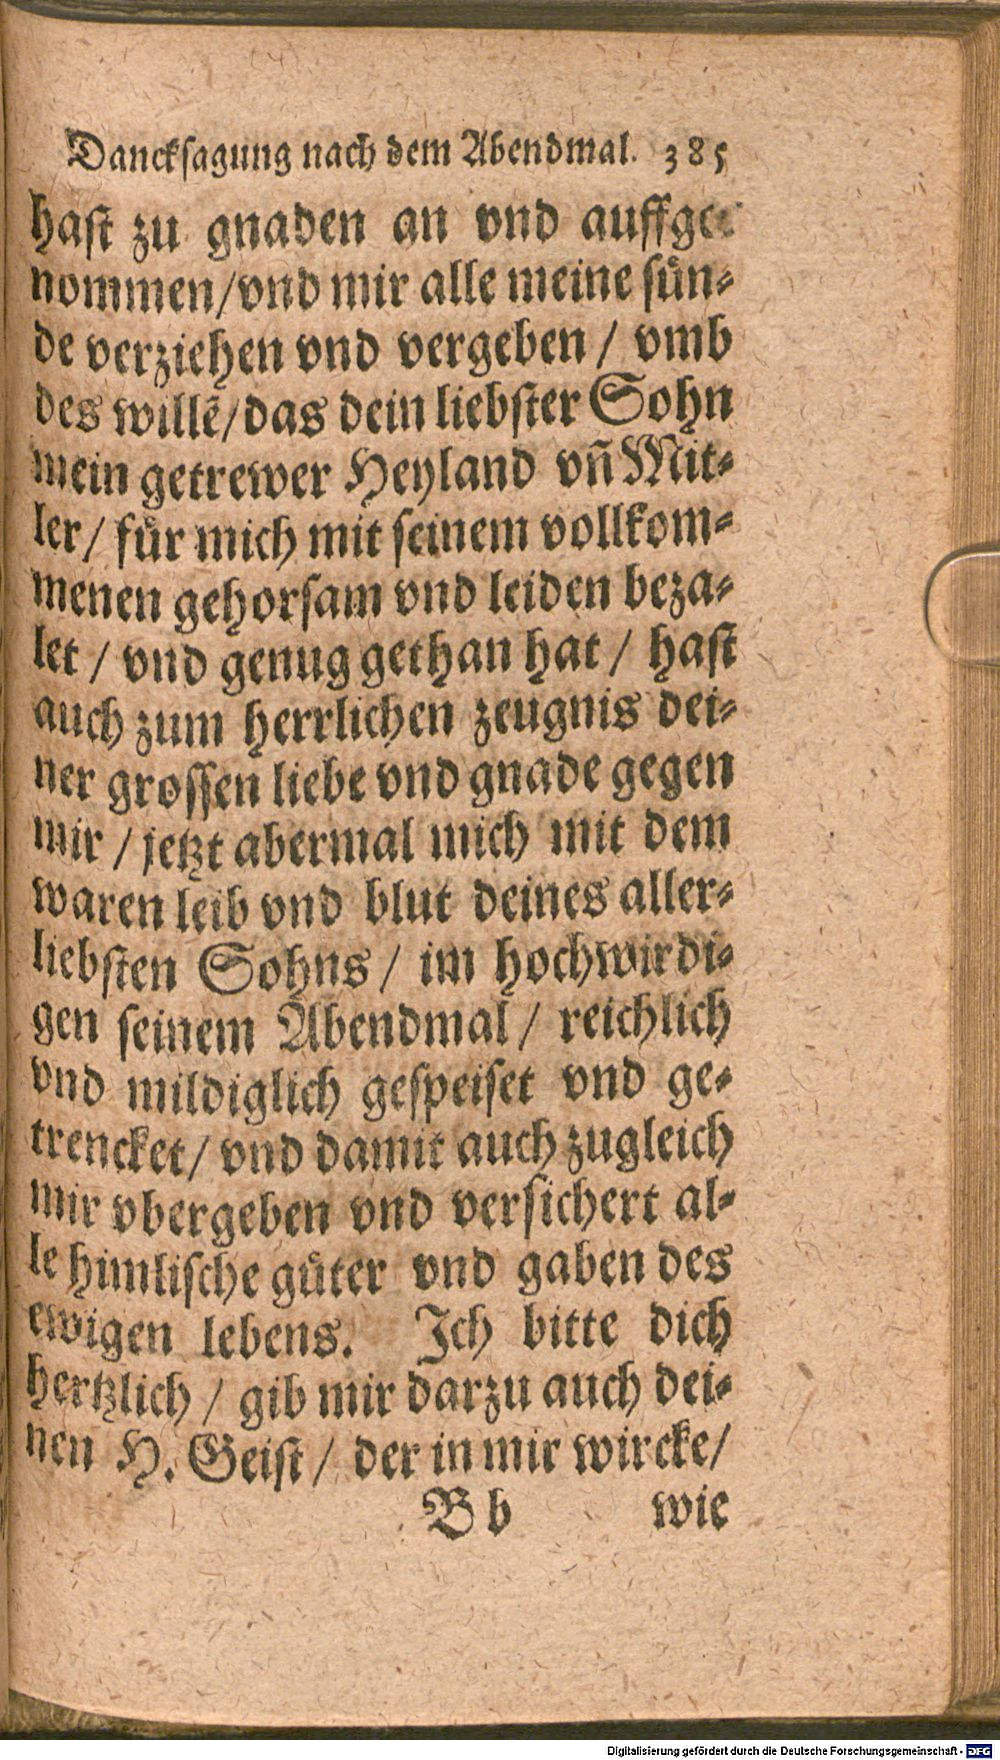 Danckſagung nach dem Abendmal. 385
haſt zu gnaden an vnd auffge⸗
nommen/vnd mir alle meine ſuͤn⸗
de verziehen vnd vergeben / vmb
des willẽ/das dein liebſter Sohn
mein getrewer Heyland vñ Mit⸗
ler / fuͤr mich mit ſeinem vollkom⸗
menen gehorſam vnd leiden beza⸗
let / vnd genug gethan hat / haſt
auch zum herrlichen zeugnis dei⸗
ner groſſen liebe vnd gnade gegen
mir / jetzt abermal mich mit dem
waren leib vnd blut deines aller⸗
liebſten Sohns / im hochwirdi⸗
gen ſeinem Abendmal / reichlich
vnd mildiglich geſpeiſet vnd ge⸗
trencket/ vnd damit auch zugleich
mir vbergeben vnd verſichert al⸗
le himliſche guͤter vnd gaben des
ewigen lebens. Ich bitte dich
hertzlich / gib mir darzu auch dei⸗
nen H. Geiſt / der in mir wircke/
B b wie
Digitalisierung gefördert durch die Deutsche Forschungsgemeinschaft - DFG